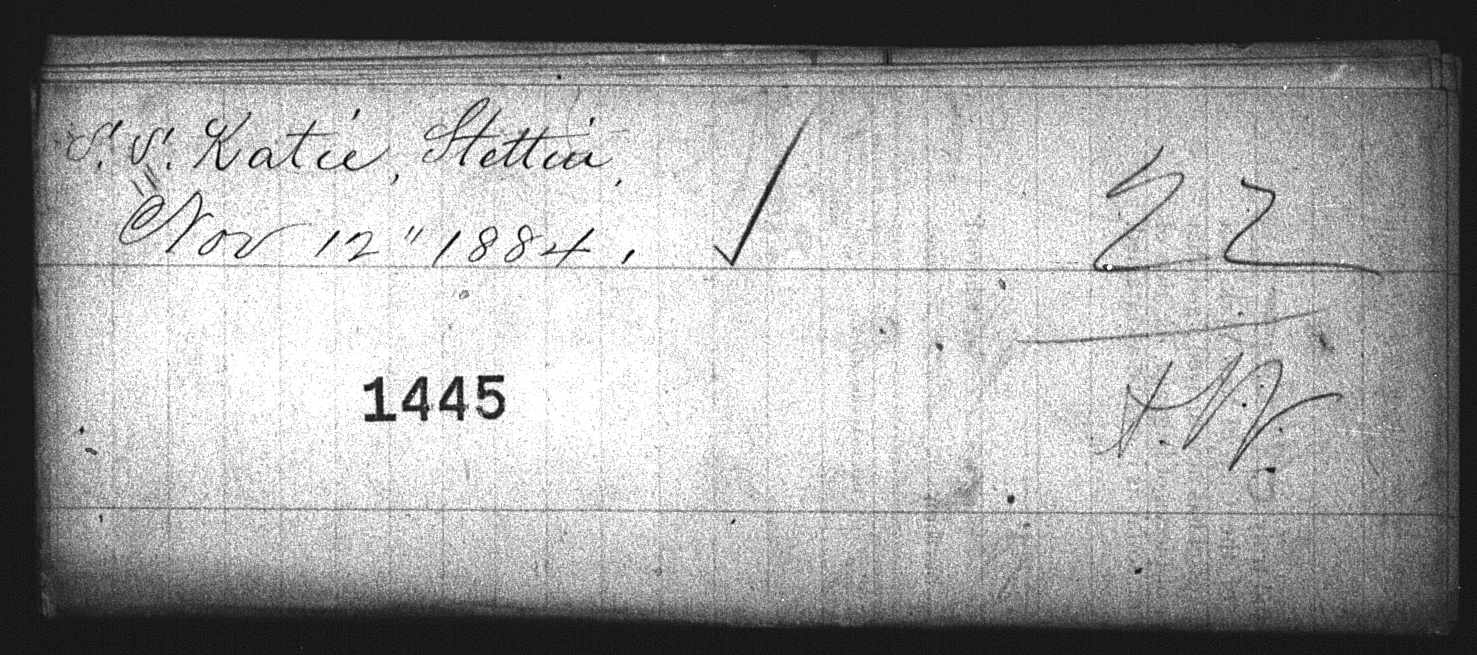 S. S. Katie, Stettin,
Nov 12" 1884.
22
1445